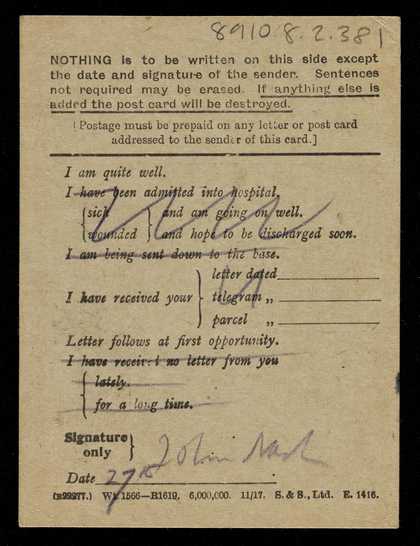 8910.8.2.381
NOTHING is to be written on this side except
the date and signature of the sender. Sentences
not required may be erased. If anything else is
added the post card will be destroyed.
[Postage must be prepaid on any letter or post card
addressed to the sender of this card.]
I am quite well.
I have been admitted into hospital,
{ sick } and am going on well.
{ wounded } and hope to be discharged soon.
I am being sent down to the base.
I have received your { letter dated
telegram ,,
parcel ,,
Letter follows at first opportunity.
I have received no letter from you
{ lately.
{ for a long time.
Signature
only } John Nash
Date 27th
(B22277.) Wt. 1566—R1619. 6,000,000. 11/17. S. & S., Ltd. E. 1416.